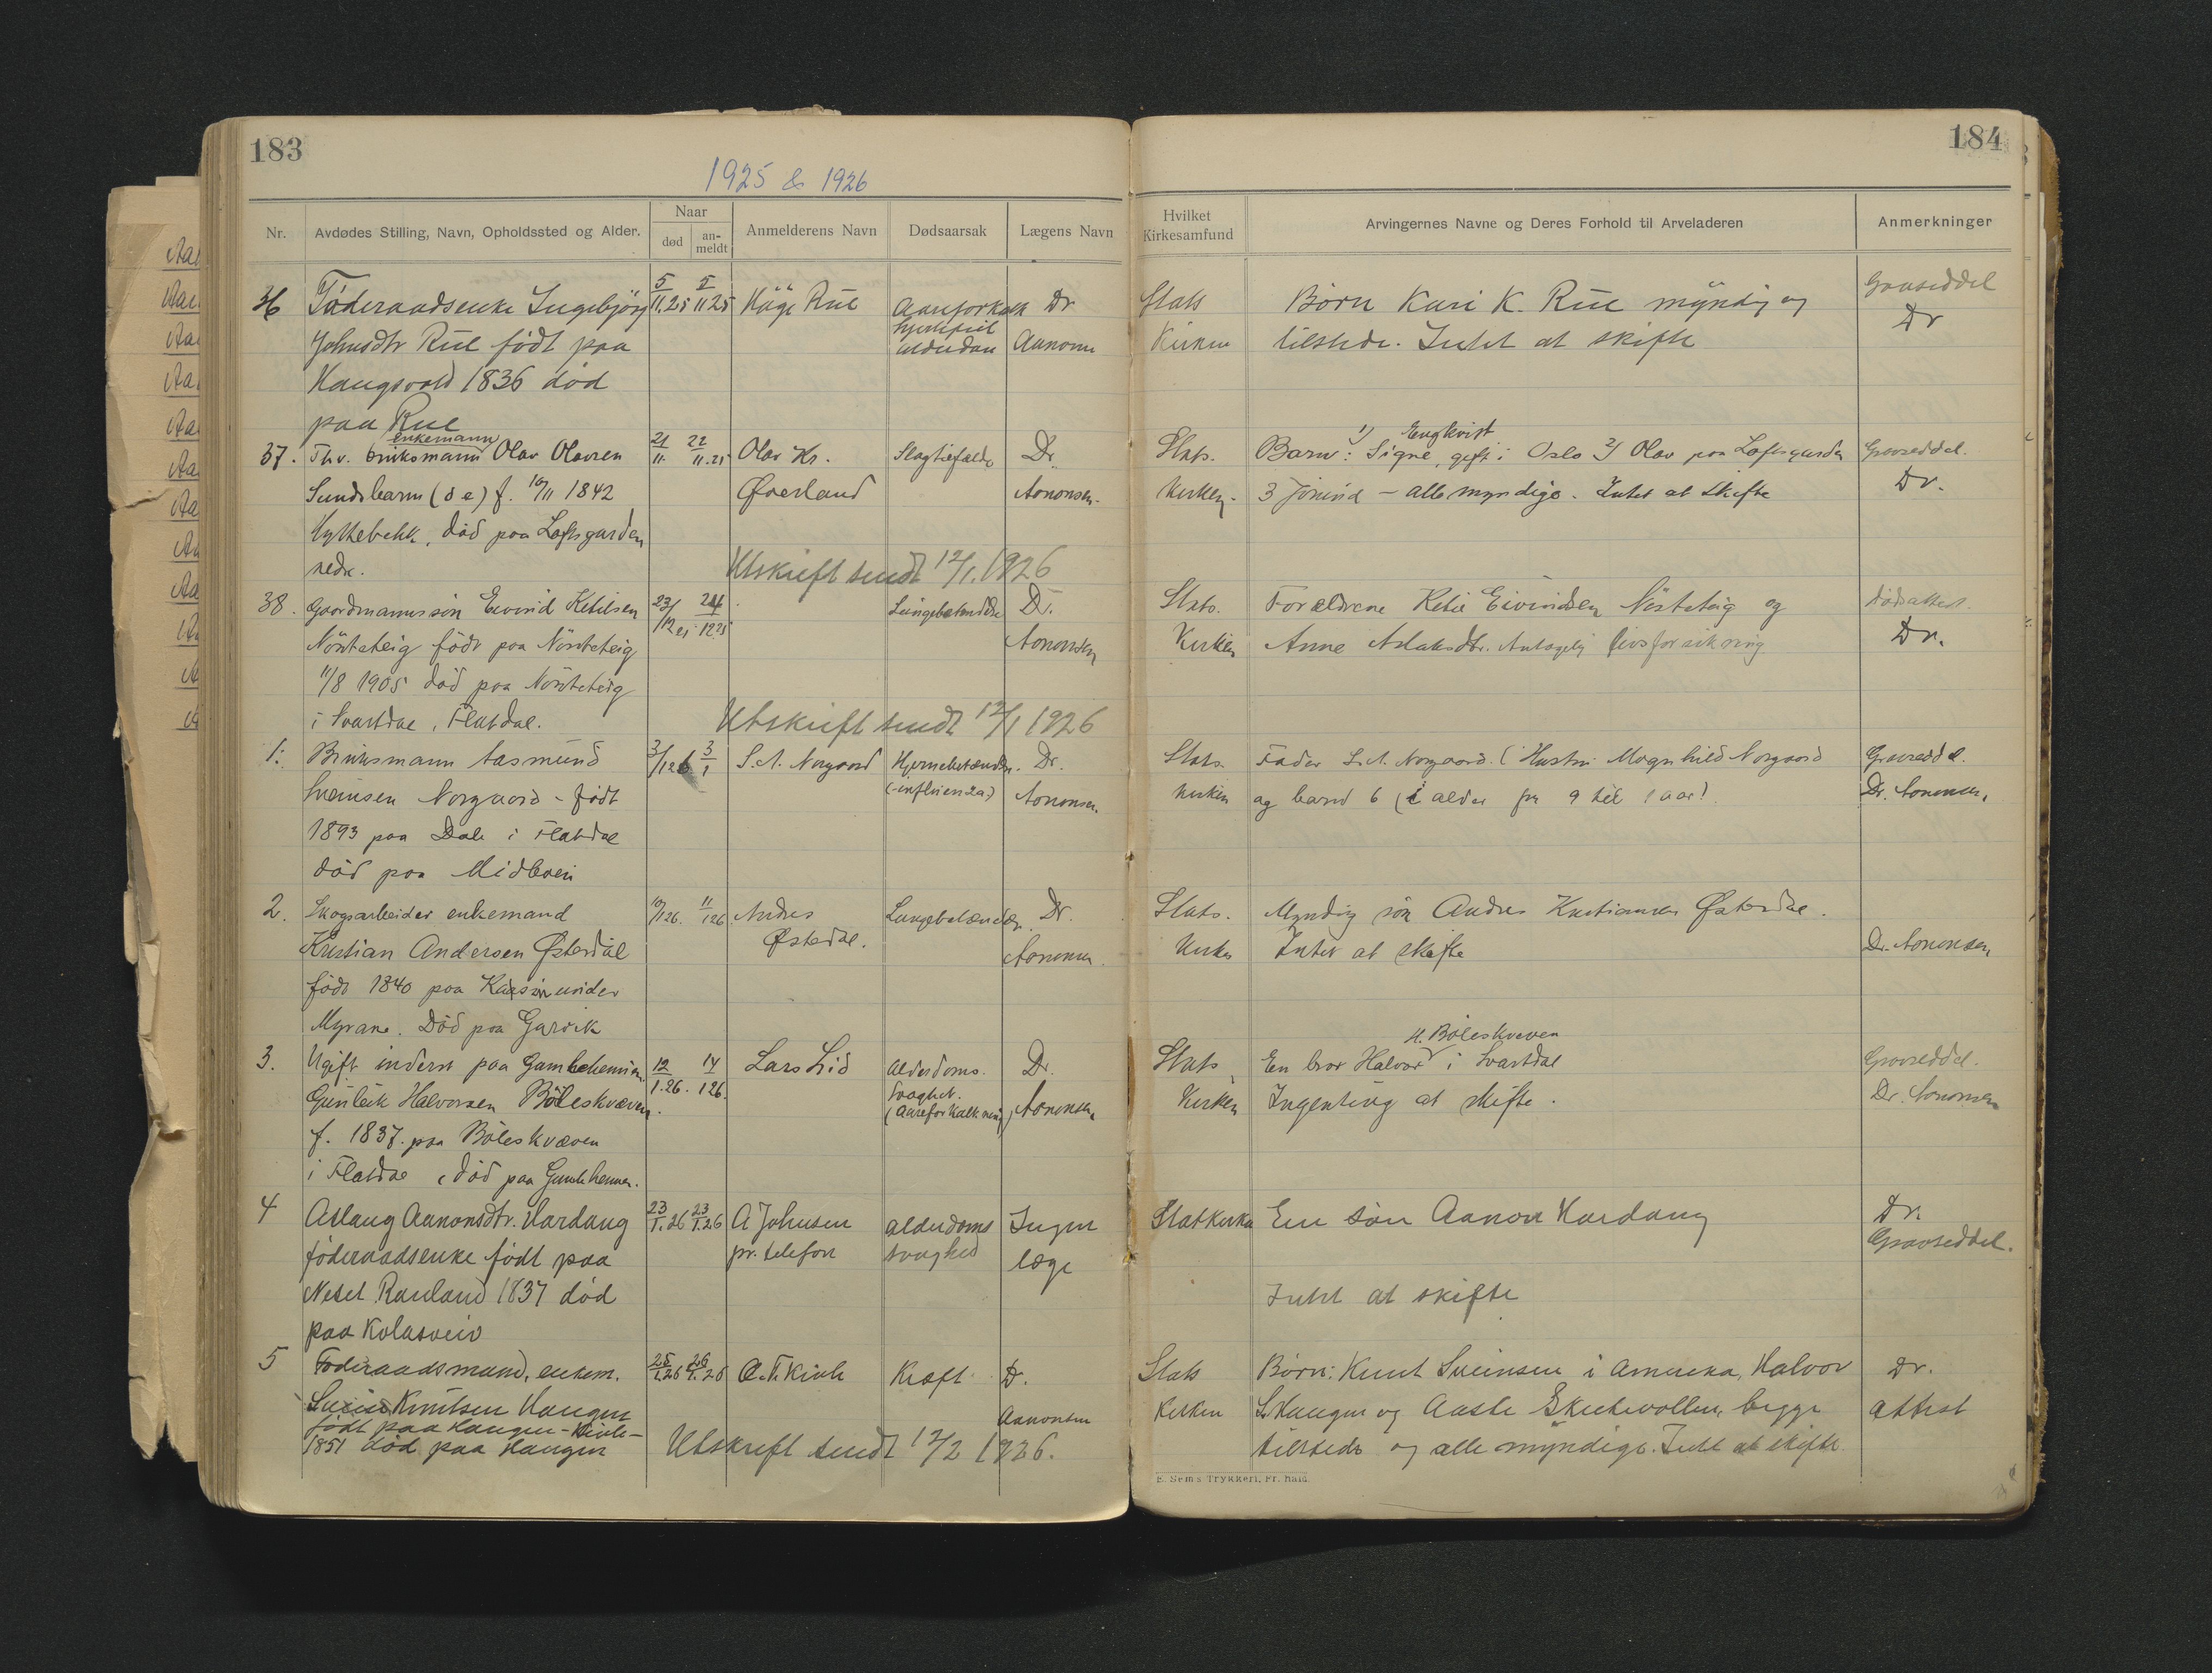 183
1925 & 1926
Nr.
Avdødes Stilling, Navn, Opholdssted og Alder.
Naar
død
an-
meldt
Anmelderens Navn
Dødsaarsak
Lægens Navn
36
Föderaadsenke Ingebjörg
Johnsdtr Rue födt paa
Haugsvold 1836 död
paa Rue
5/11.25
5/11 25
Häge Rue
Aareforkalk
alderdom
Dr
Aanonsen
37.
enkemann
Fhv. bruksmann Olav Olavsen
Sundsbarm (d e) f. 10/11 1842
Hyttebekk, död paa Loftsgarden
nedre.
21/11.
22/11.25
Olav Kr.
Øverland
Slagtilfælde
Dr.
Aanonsen.
Utskrift sendt 12/1. 1926
38.
Gaardmannssön Eivind Ketilsen
Nörsteteig födt paa Nörsteteig
11/8 1905 död paa Nörsteteig
i Svartdal, Flatdal.
23/12 25
24/12 25
Lungebetændelse
Dr.
Aanonsen
Utskrift sendt 12/1 1926
1.
Bruksmann Aasmund
Sveinsen Norgaard - födt
1893 paa Dale i Flatdal
död paa Midbøen
3/1 26
3/1
S. A. Norgaard
Hjernebetænd.
(-influenza)
Dr.
Aanonsen
2.
Skogsarbeider enkemand
Kristian Andersen Østerdal
födt 1840 paa under
Myrane. Död paa Garvik
10/1 26.
11/1 26
Andres
Østerdal.
Lungebetændelse.
Dr.
Aanonsen.
3.
Ugift inderst paa Gamleheimen
Gunleik Halvorsen Böleskvæven.
f. 1837. paa Böleskvæven
i Flatdal, död paa Gamleheimen.
12/1.26.
14/1 26.
Lars Lid
Alderdoms.
svaghet.
(Aareforkalkning)
Dr.
Aanonsen
4
Aslaug Aanonsdtr. Hardang
föderaadsenke födt paa
Neset Rauland 1837 död
paa Kolasveiv
23/1.26
23/1.26
A Johnsen
pr. telefon
alderdoms
svaghed
Ingen
læge
5
Föderaadsmand, enkem.
Svein Knutsen Haugen
födt paa Haugen - Kivle -
1851 död paa Haugen
25/1.26
26/1.26
O. T. Kivle
Kræft
Dr.
Aanonsen
Utskrift sendt 12/2 1926.
184
Hvilket
Kirkesamfund
Arvingernes Navne og Deres Forhold til Arveladeren
Anmerkninger
Stats
Kirken
Börn Kari K. Rue myndig og
tilstede. Intet at skifte
Gravseddel
Dr
Stats.
Kirken.
Engkvist
Barn: 1) Signe, gift i Oslo 2) Olav paa Loftsgarden
3 Jörund - alle myndige. Intet at skifte
Gravseddel.
Dr.
Stats.
Kirken
Forældrene Ketil Eivindsen Nörsteteig og
Anne Aslaksdtr. Antagelig livsforsikring
Dödsattest.
Dr.
Stats.
Kirken
Fader S. A. Norgaard. (Hustru Magnhild Norgaard
og barn 6 (i alder fra 9 til 1 aar)
Gravseddel.
Dr. Aanonsen.
Stats.
Kirken
Myndig sön Andres Kristiansen Østerdal.
Intet at skifte
Dr. Aanonsen
Stats
Kirken
H. Böleskvæven
En bror Halvor i Svartdal
Ingenting at skifte.
Gravseddel.
Dr. Aanonsen
Statskirken
En sön Aanon Hardang
Intet at skifte
Dr.
Gravseddel.
Stats
Kirken
Börn: Knut Sveinsen i Amerika, Halvor
S. Haugen og Aaste begge
tilstede og alle myndige. Intet at skifte
Dr.
attest
E. Sem's Trykkeri, Fr.hald.